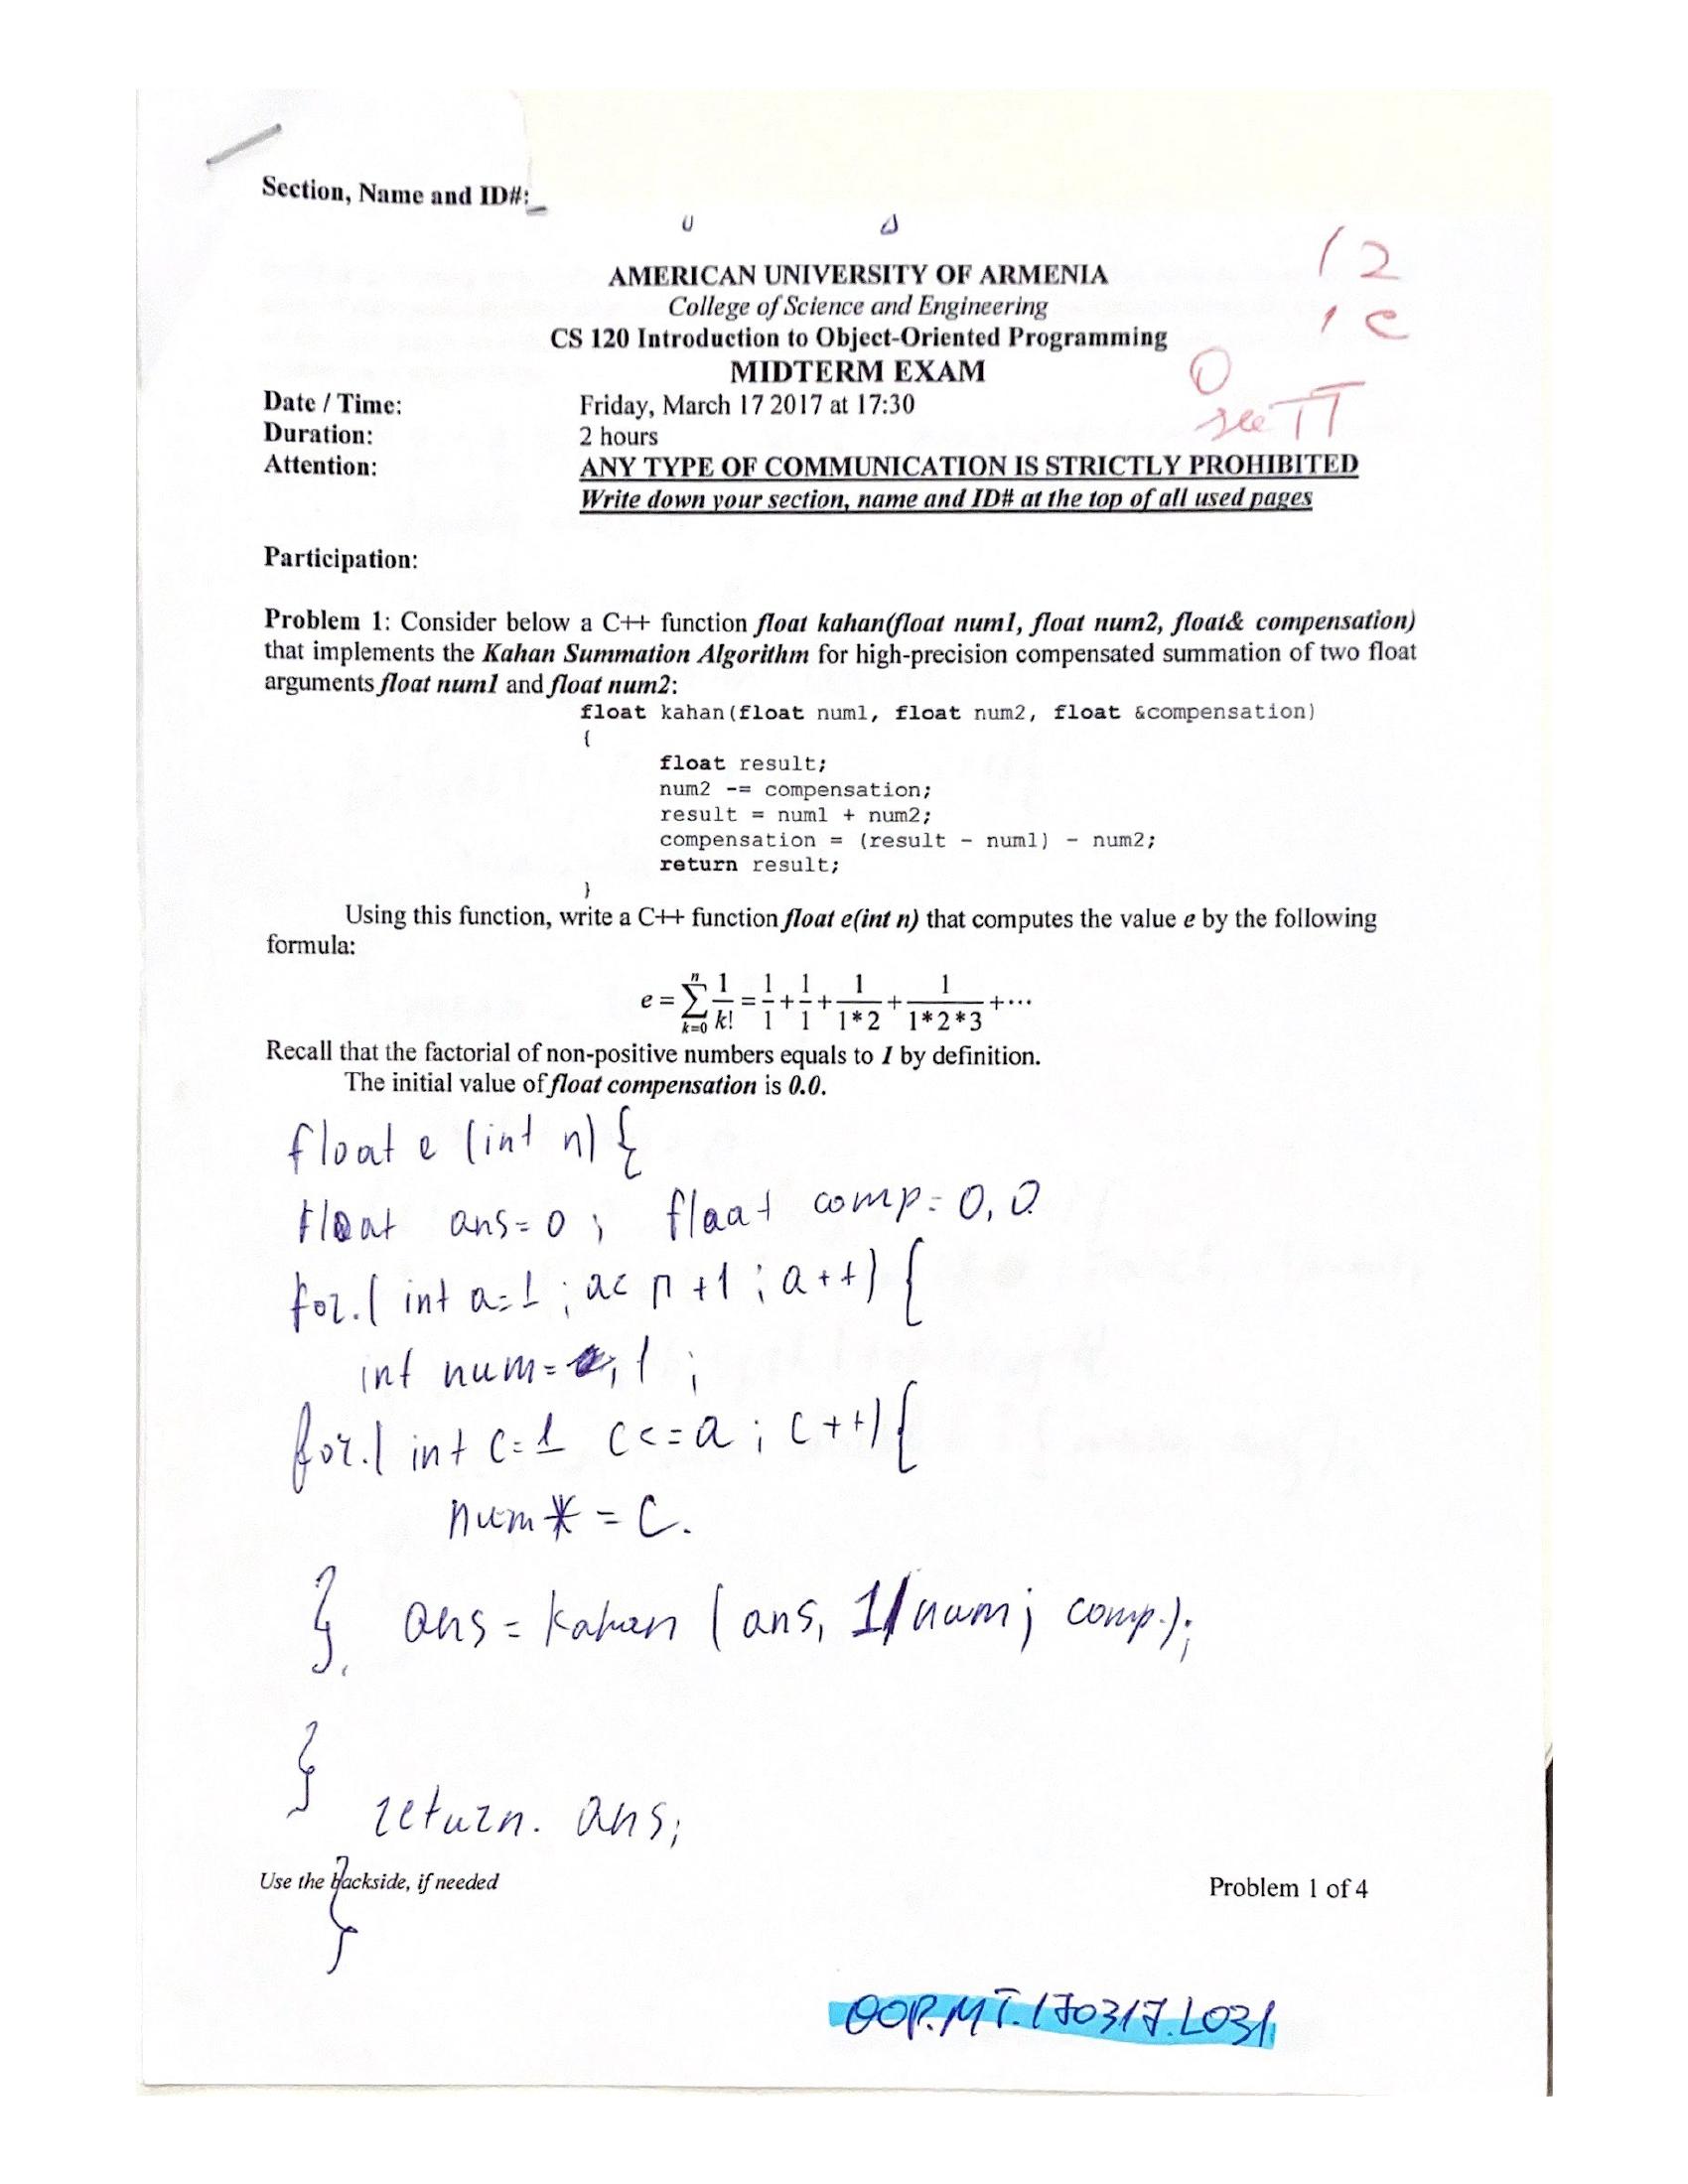 Section, Name and ID#:
12
AMERICAN UNIVERSITY OF ARMENIA
College of Science and Engineering
CS 120 Introduction to Object-Oriented Programming
MIDTERM EXAM
0
see TT
Date / Time: Friday, March 17 2017 at 17:30
Duration: 2 hours
Attention: ANY TYPE OF COMMUNICATION IS STRICTLY PROHIBITED
Write down your section, name and ID# at the top of all used pages
Participation:
Problem 1: Consider below a C++ function float kahan(float num1, float num2, float& compensation)
that implements the Kahan Summation Algorithm for high-precision compensated summation of two float
arguments float num1 and float num2:
float kahan(float num1, float num2, float &compensation)
{
float result;
num2 -= compensation;
result = num1 + num2;
compensation = (result - num1) - num2;
return result;
}
Using this function, write a C++ function float e(int n) that computes the value e by the following
formula:
e = ∑_{k=0}^{n} 1/k! = 1/1 + 1/1 + 1/(1*2) + 1/(1*2*3) + ⋯
Recall that the factorial of non-positive numbers equals to 1 by definition.
The initial value of float compensation is 0.0.
float e (int n) {
float ans = 0 ; float comp = 0,0
for. ( int a=1 ; a< n +1 ; a++) {
int num = 1 ;
for. ( int c=1 c<=a ; c++) {
num * = c.
}. ans = kahan ( ans, 1/num; comp.);
}
return. ans;
Use the backside, if needed Problem 1 of 4
}
OOP.MT.170317.L031